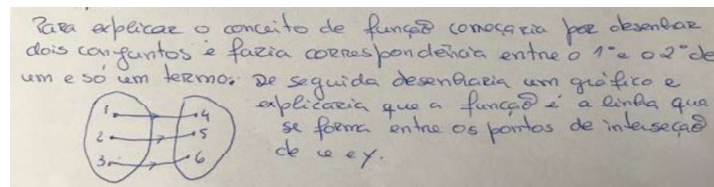 Para explicar o conceito de função começaria por desenhar
dois conjuntos e fazia correspondência entre o 1º e o 2º de
um e só um termo. De seguida desenharia um gráfico e
explicaria que a função é a linha que
se forma entre os pontos de interseção
de x e y.
1 4
2 5
3 6